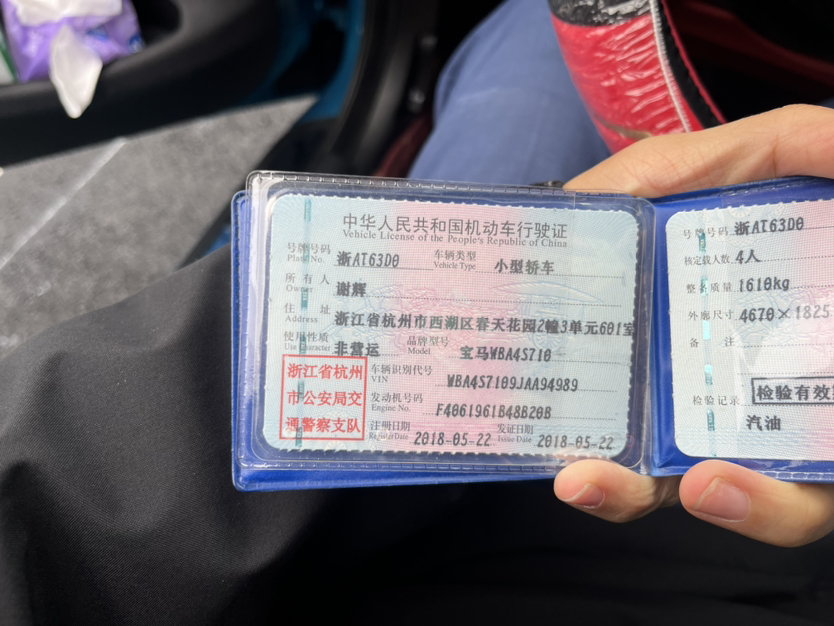 中华人民共和国机动车行驶证
Vehicle License of the People's Republic of China
号牌号码 浙AT63D0 车辆类型 小型轿车
Plate No. Vehicle Type
所有人 谢辉
Owner
住址 浙江省杭州市西湖区春天花园2幢3单元601室
Address
使用性质 非营运 品牌型号 宝马WBA4S710
Use Character Model
浙江省杭州
市公安局交
通警察支队
车辆识别代号 WBA4S7109JAA94989
VIN
发动机号码 F4061961B48B20B
Engine No.
注册日期 2018-05-22 发证日期 2018-05-22
Register Date Issue Date
号牌号码 浙AT63D0
核定载人数 4人
整备质量 1610kg
外廓尺寸 4670×1825
备注
检验记录 检验有效
汽油